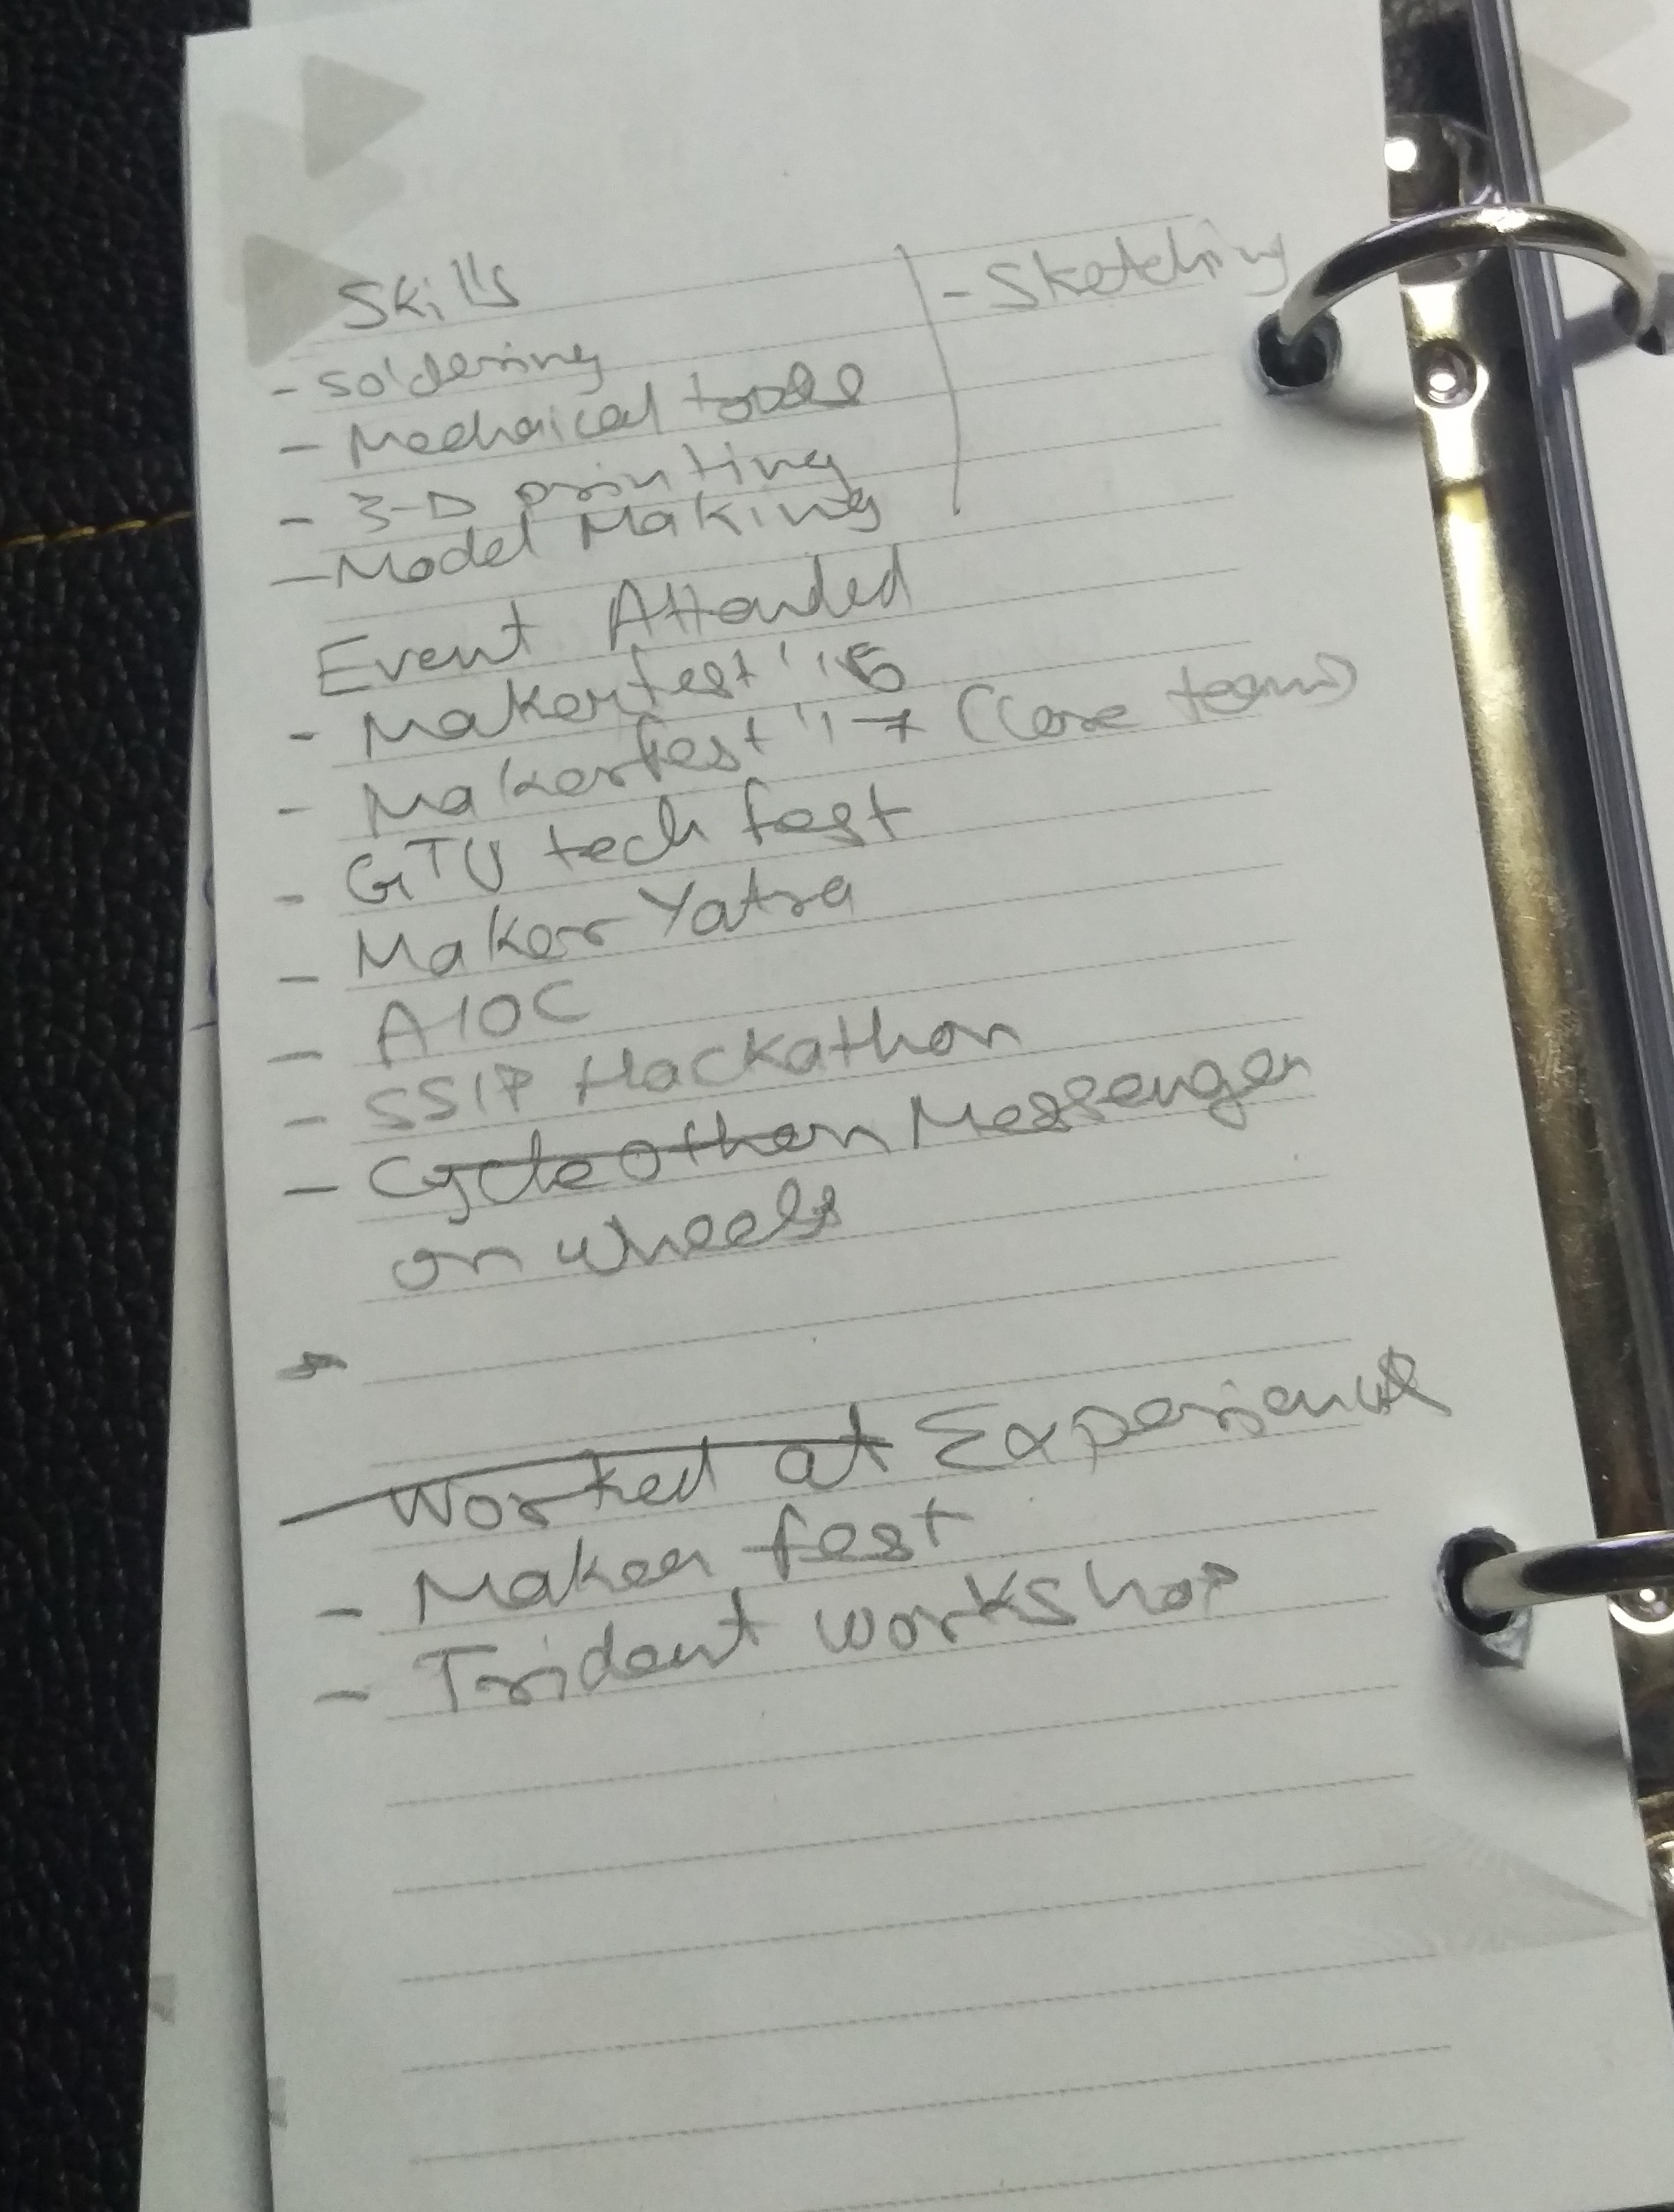 Skills
- Soldering
- Mechaical tools
- 3-D printing
- Model Making
- Sketching
Event Attended
- Makerfest '16
- Makerfest '17 (Core team)
- GTU tech fest
- Maker Yatra
- A10C
- SSIP Hackathon
- Cycle Othon Messenger
on wheels
- Worked at Experience
- Maker fest
- Trident workshop